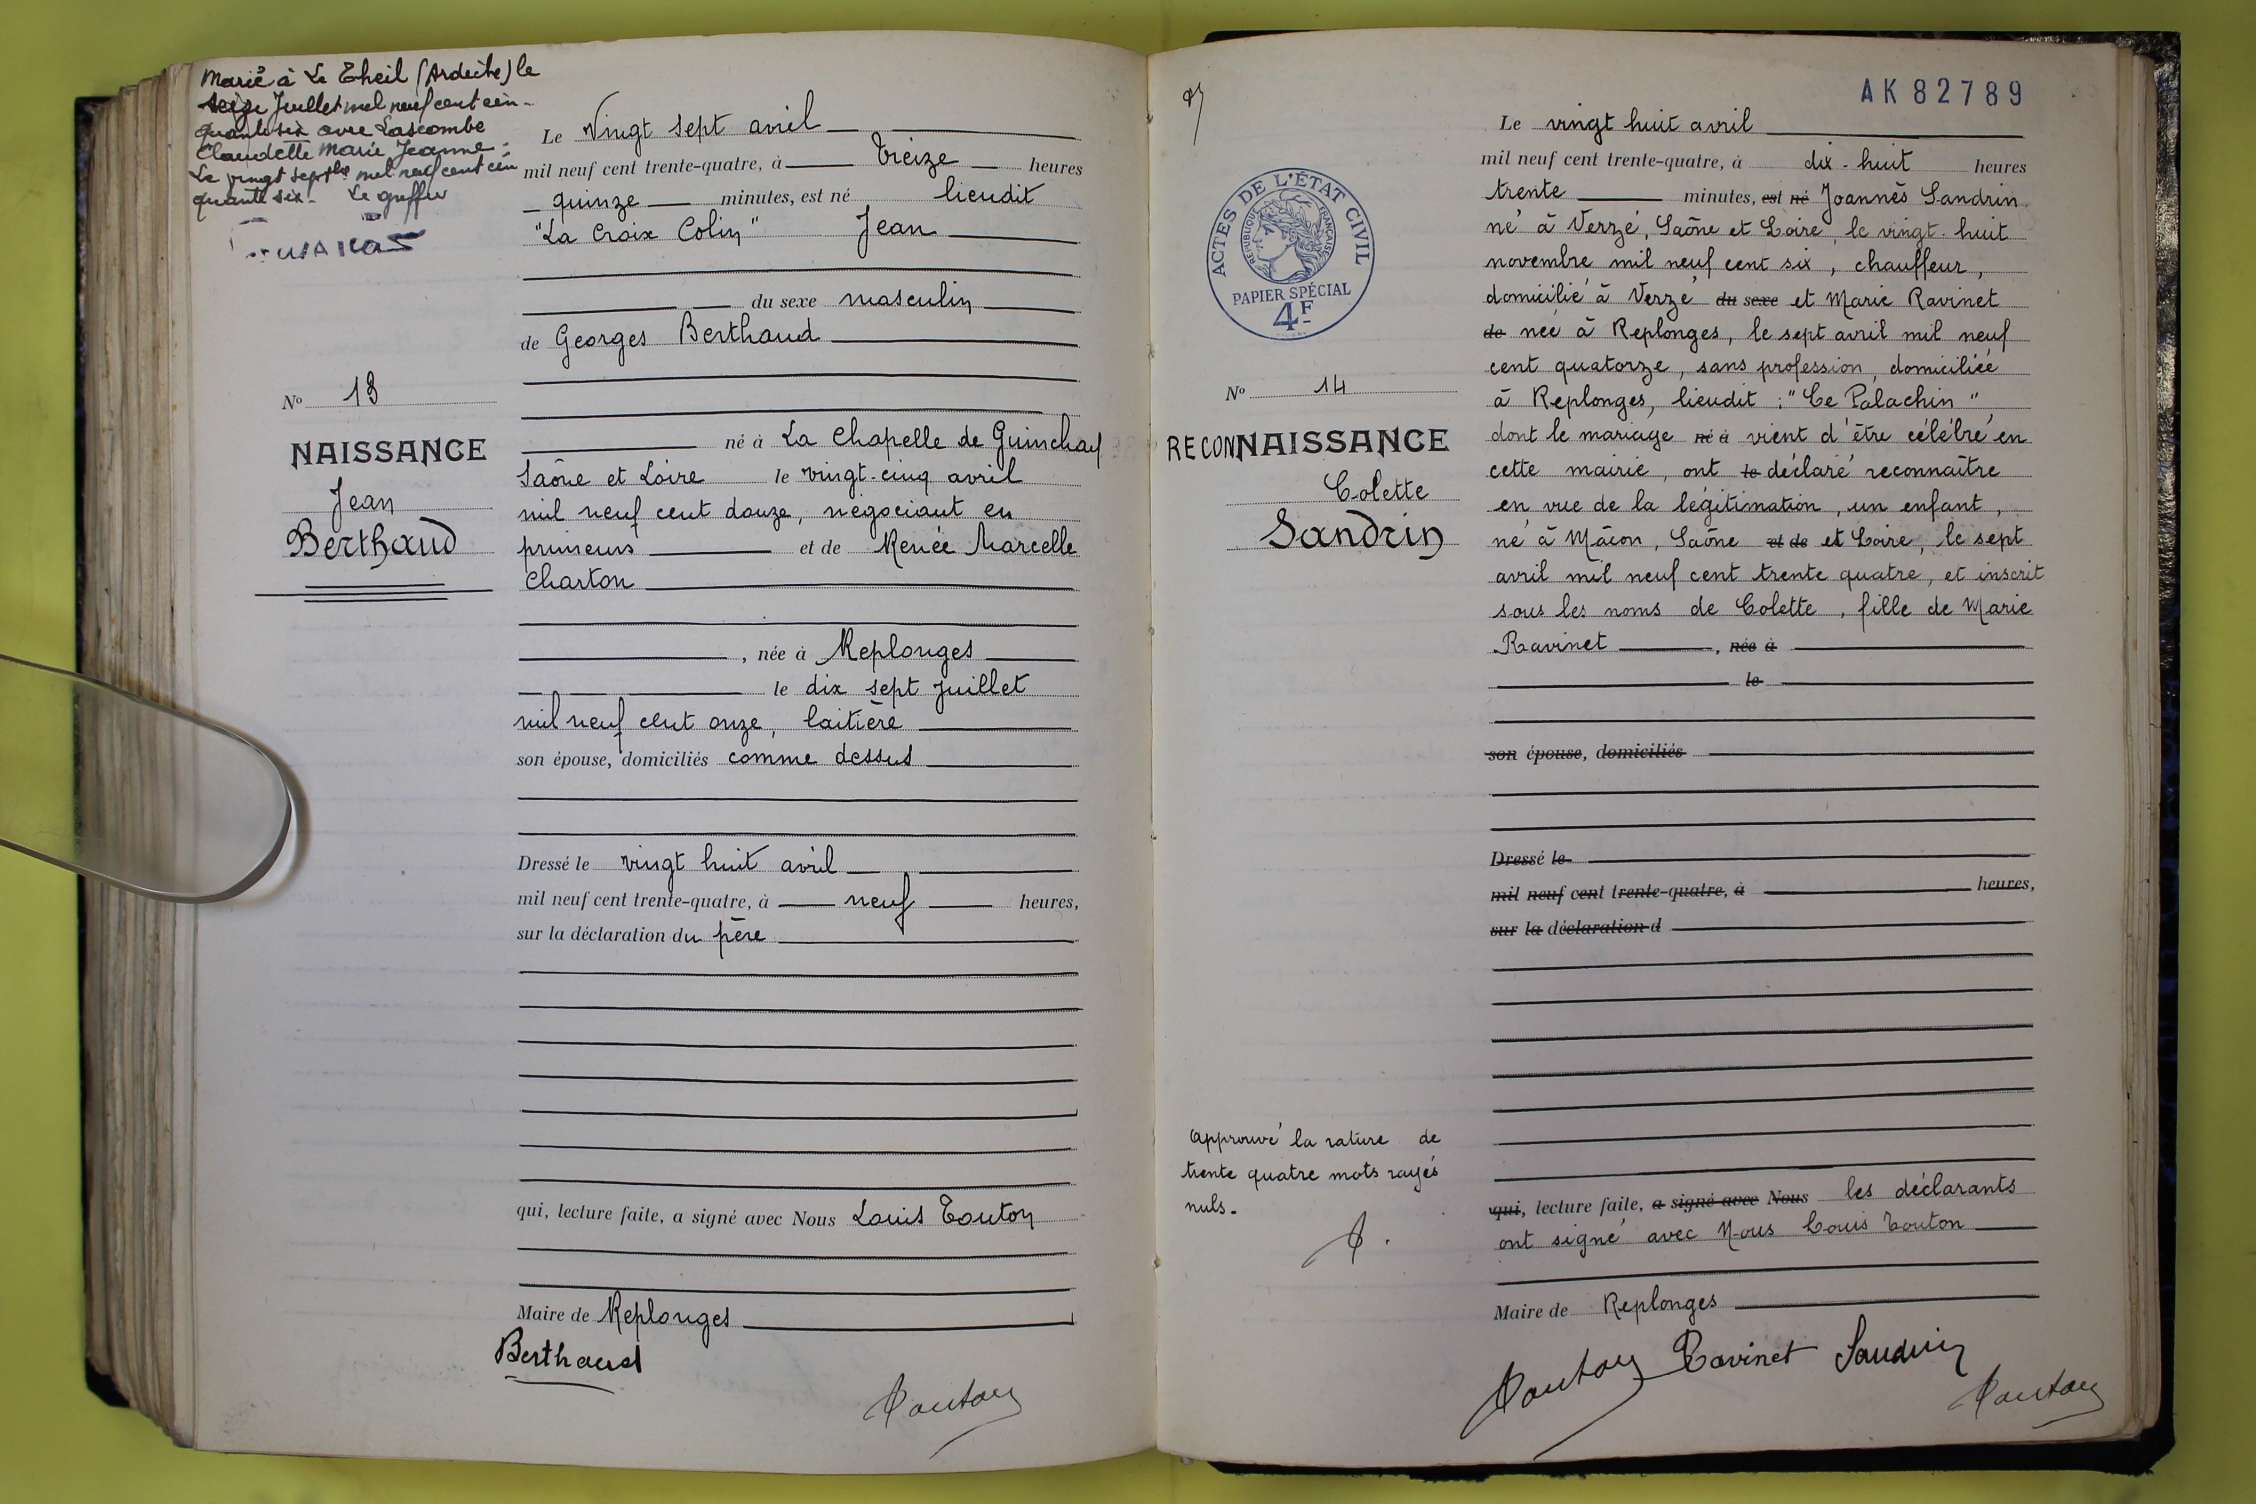 Marié à Le Theil (Ardèche) le
seize Juillet mil neuf cent cin-
quante six avec Lascombe
Claudette Marie Jeanne.
Le vingt septbre mil neuf cent cin
quante six. Le greffier
Le Vingt sept avril
mil neuf cent trente-quatre, à Treize heures
quinze minutes, est né lieudit
"La Croix Colin" Jean
du sexe masculin
de Georges Berthaud
No 13
NAISSANCE
Jean
Berthaud
né à La Chapelle de Guinchay
Saône et Loire le vingt-cinq avril
mil neuf cent douze, négociant en
primeurs et de Renée Marcelle
Charton
, née à Replonges
le dix sept Juillet
mil neuf cent onze, laitière
son épouse, domiciliés comme dessus
Dressé le vingt huit avril
mil neuf cent trente-quatre, à neuf heures,
sur la déclaration du père
qui, lecture faite, a signé avec Nous Louis Touton
Maire de Replonges
Berthaud
Touton
AK 82789
ACTES DE L'ÉTAT CIVIL
RÉPUBLIQUE FRANÇAISE
PAPIER SPÉCIAL
4F
No 14
RECONNAISSANCE
Colette
Sandrin
Le vingt huit avril
mil neuf cent trente-quatre, à dix-huit heures
trente minutes, est né Joannès Sandrin
né à Verzé, Saône et Loire, le vingt-huit
novembre mil neuf cent six, chauffeur,
domicilié à Verzé du sexe et Marie Ravinet
de née à Replonges, le sept avril mil neuf
cent quatorze, sans profession, domiciliée
à Replonges, lieudit : "Le Palachin",
dont le mariage né à vient d'être célébré en
cette mairie, ont le déclaré reconnaître
en vue de la légitimation, un enfant,
né à Mâcon, Saône et de et Loire, le sept
avril mil neuf cent trente quatre, et inscrit
sous les noms de Colette, fille de Marie
Ravinet , née à
le
son épouse, domiciliés
Dressé le
mil neuf cent trente-quatre, à heures,
sur la déclaration d
Approuvé la rature de
trente quatre mots rayés
nuls.
qui, lecture faite, a signé avec Nous les déclarants
ont signé avec Nous Louis Touton
Maire de Replonges
Touton Ravinet Sandrin
Touton